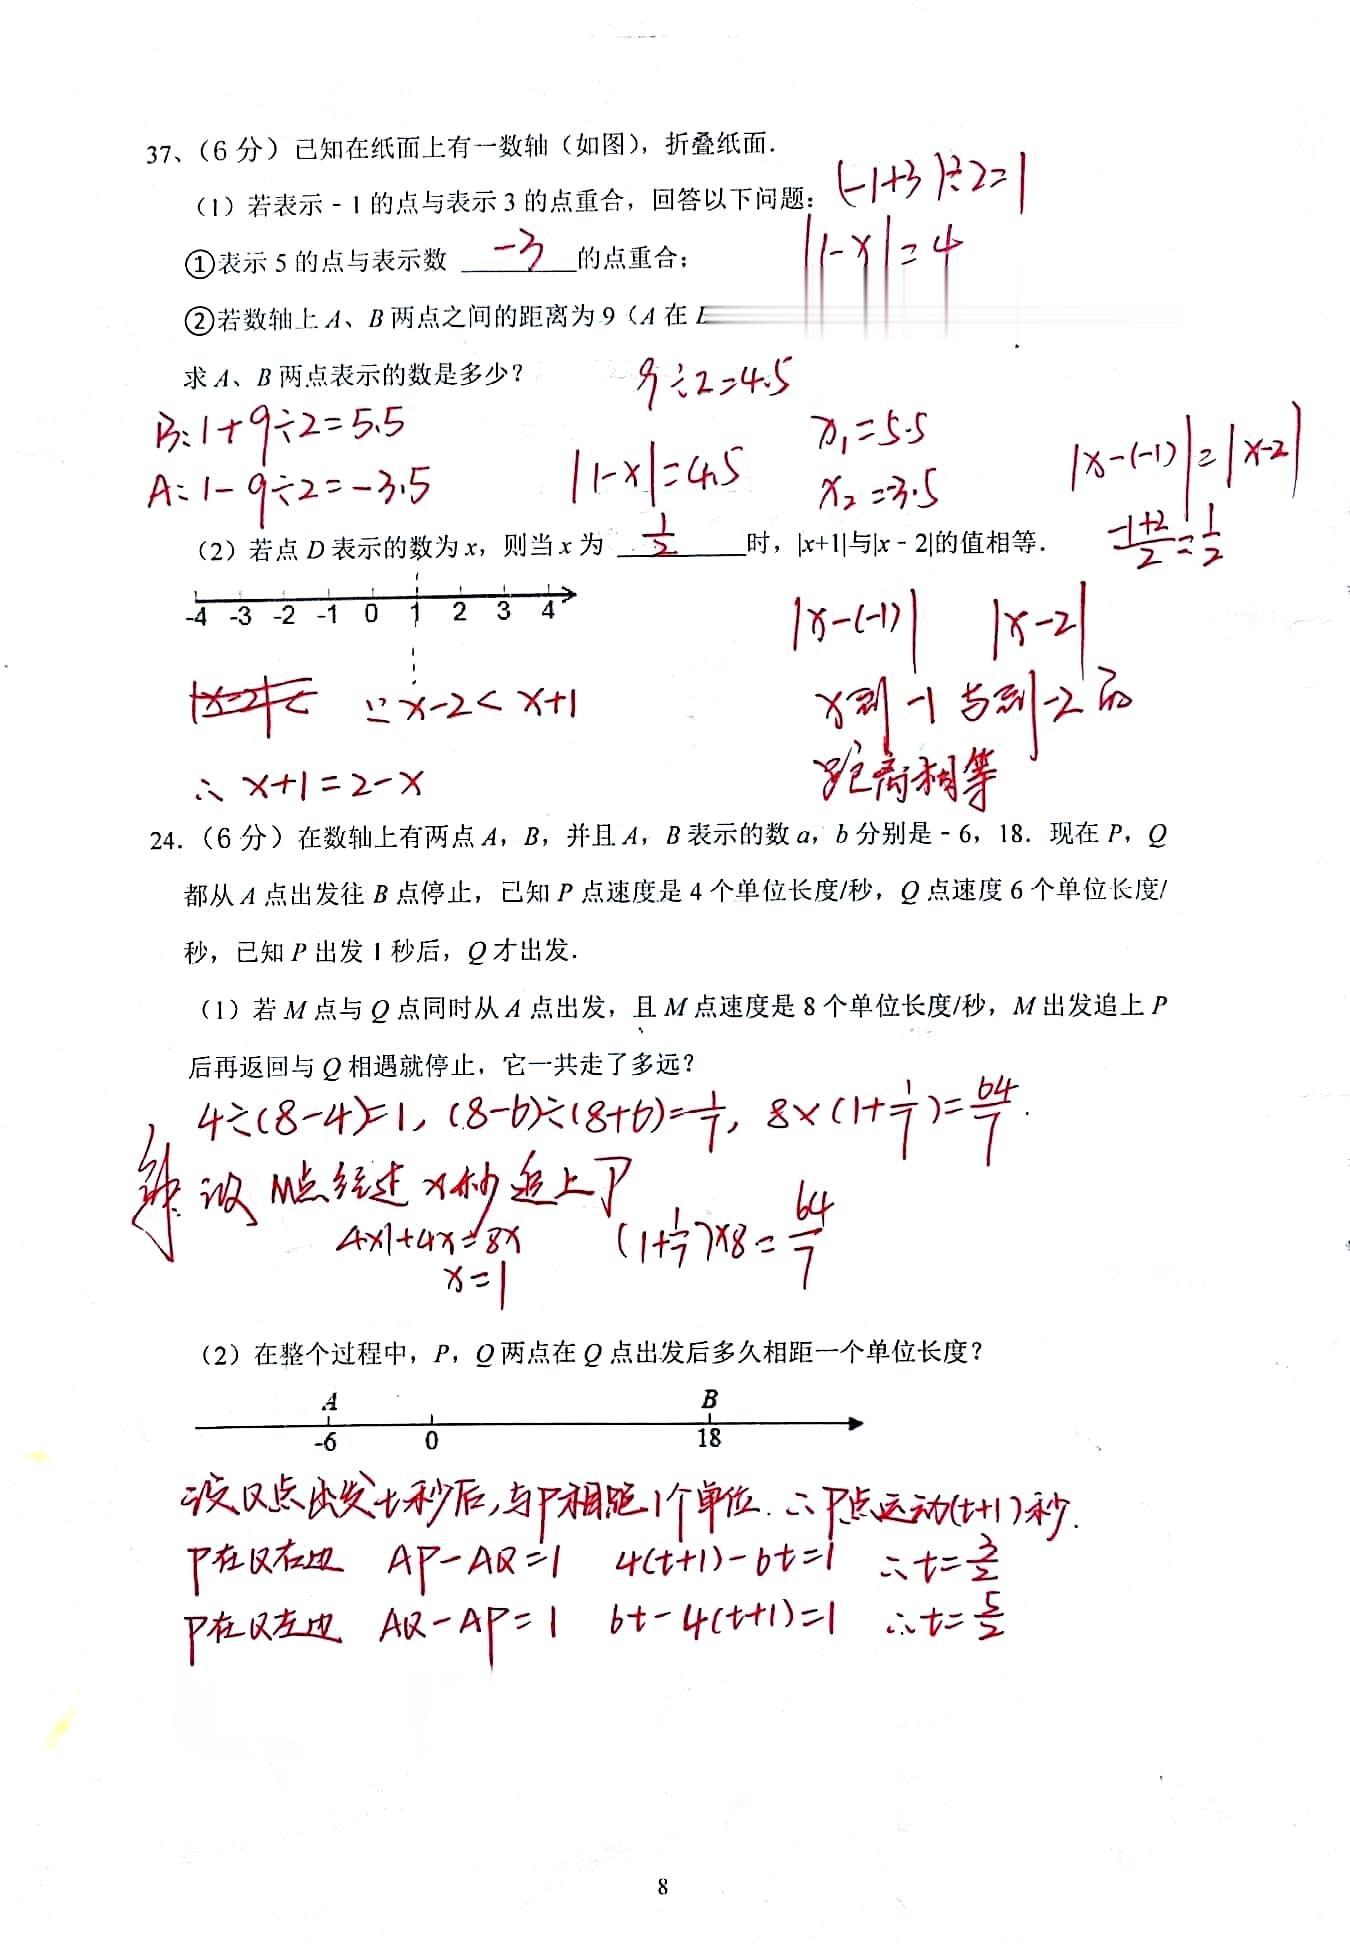 37、（6 分）已知在纸面上有一数轴（如图），折叠纸面．
(-1+3)÷2=1
（1）若表示－1 的点与表示 3 的点重合，回答以下问题：
|1-x|=4
①表示 5 的点与表示数 -3 的点重合；
②若数轴上 A、B 两点之间的距离为 9（A 在
求 A、B 两点表示的数是多少？
9÷2=4.5
B:1+9÷2=5.5
x₁=5.5
|x-(-1)|=|x-2|
A:1-9÷2=-3.5
|1-x|=4.5
x₂=-3.5
（2）若点 D 表示的数为 x，则当 x 为 1/2 时，|x+1|与|x－2|的值相等．
(-1+2)/2=1/2
-4 -3 -2 -1 0 1 2 3 4
|x-(-1)| |x-2|
∵x-2<x+1
x到-1与到-2的
距离相等
∴x+1=2-x
24．（6 分）在数轴上有两点 A，B，并且 A，B 表示的数 a，b 分别是－6，18．现在 P，Q
都从 A 点出发往 B 点停止，已知 P 点速度是 4 个单位长度/秒，Q 点速度 6 个单位长度/
秒，已知 P 出发 1 秒后，Q 才出发．
（1）若 M 点与 Q 点同时从 A 点出发，且 M 点速度是 8 个单位长度/秒，M 出发追上 P
后再返回与 Q 相遇就停止，它一共走了多远？
4÷(8-4)=1, (8-6)÷(8+6)=1/7, 8×(1+1/7)=64/7.
解:设M点经过x秒追上P
4×1+4x=8x
(1+1/7)×8=64/7
x=1
（2）在整个过程中，P，Q 两点在 Q 点出发后多久相距一个单位长度？
A B
-6 0 18
设Q点出发t秒后,与P相距1个单位.∴P点运动(t+1)秒.
P在Q右边 AP-AQ=1 4(t+1)-6t=1 ∴t=3/2
P在Q左边 AQ-AP=1 6t-4(t+1)=1 ∴t=5/2
8